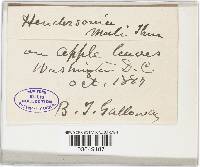 Hendersonia
Mali Thum
on apple leaves
Washington D.C.
Oct. 1887
B. T. Galloway
ELLIS
COLLECTION